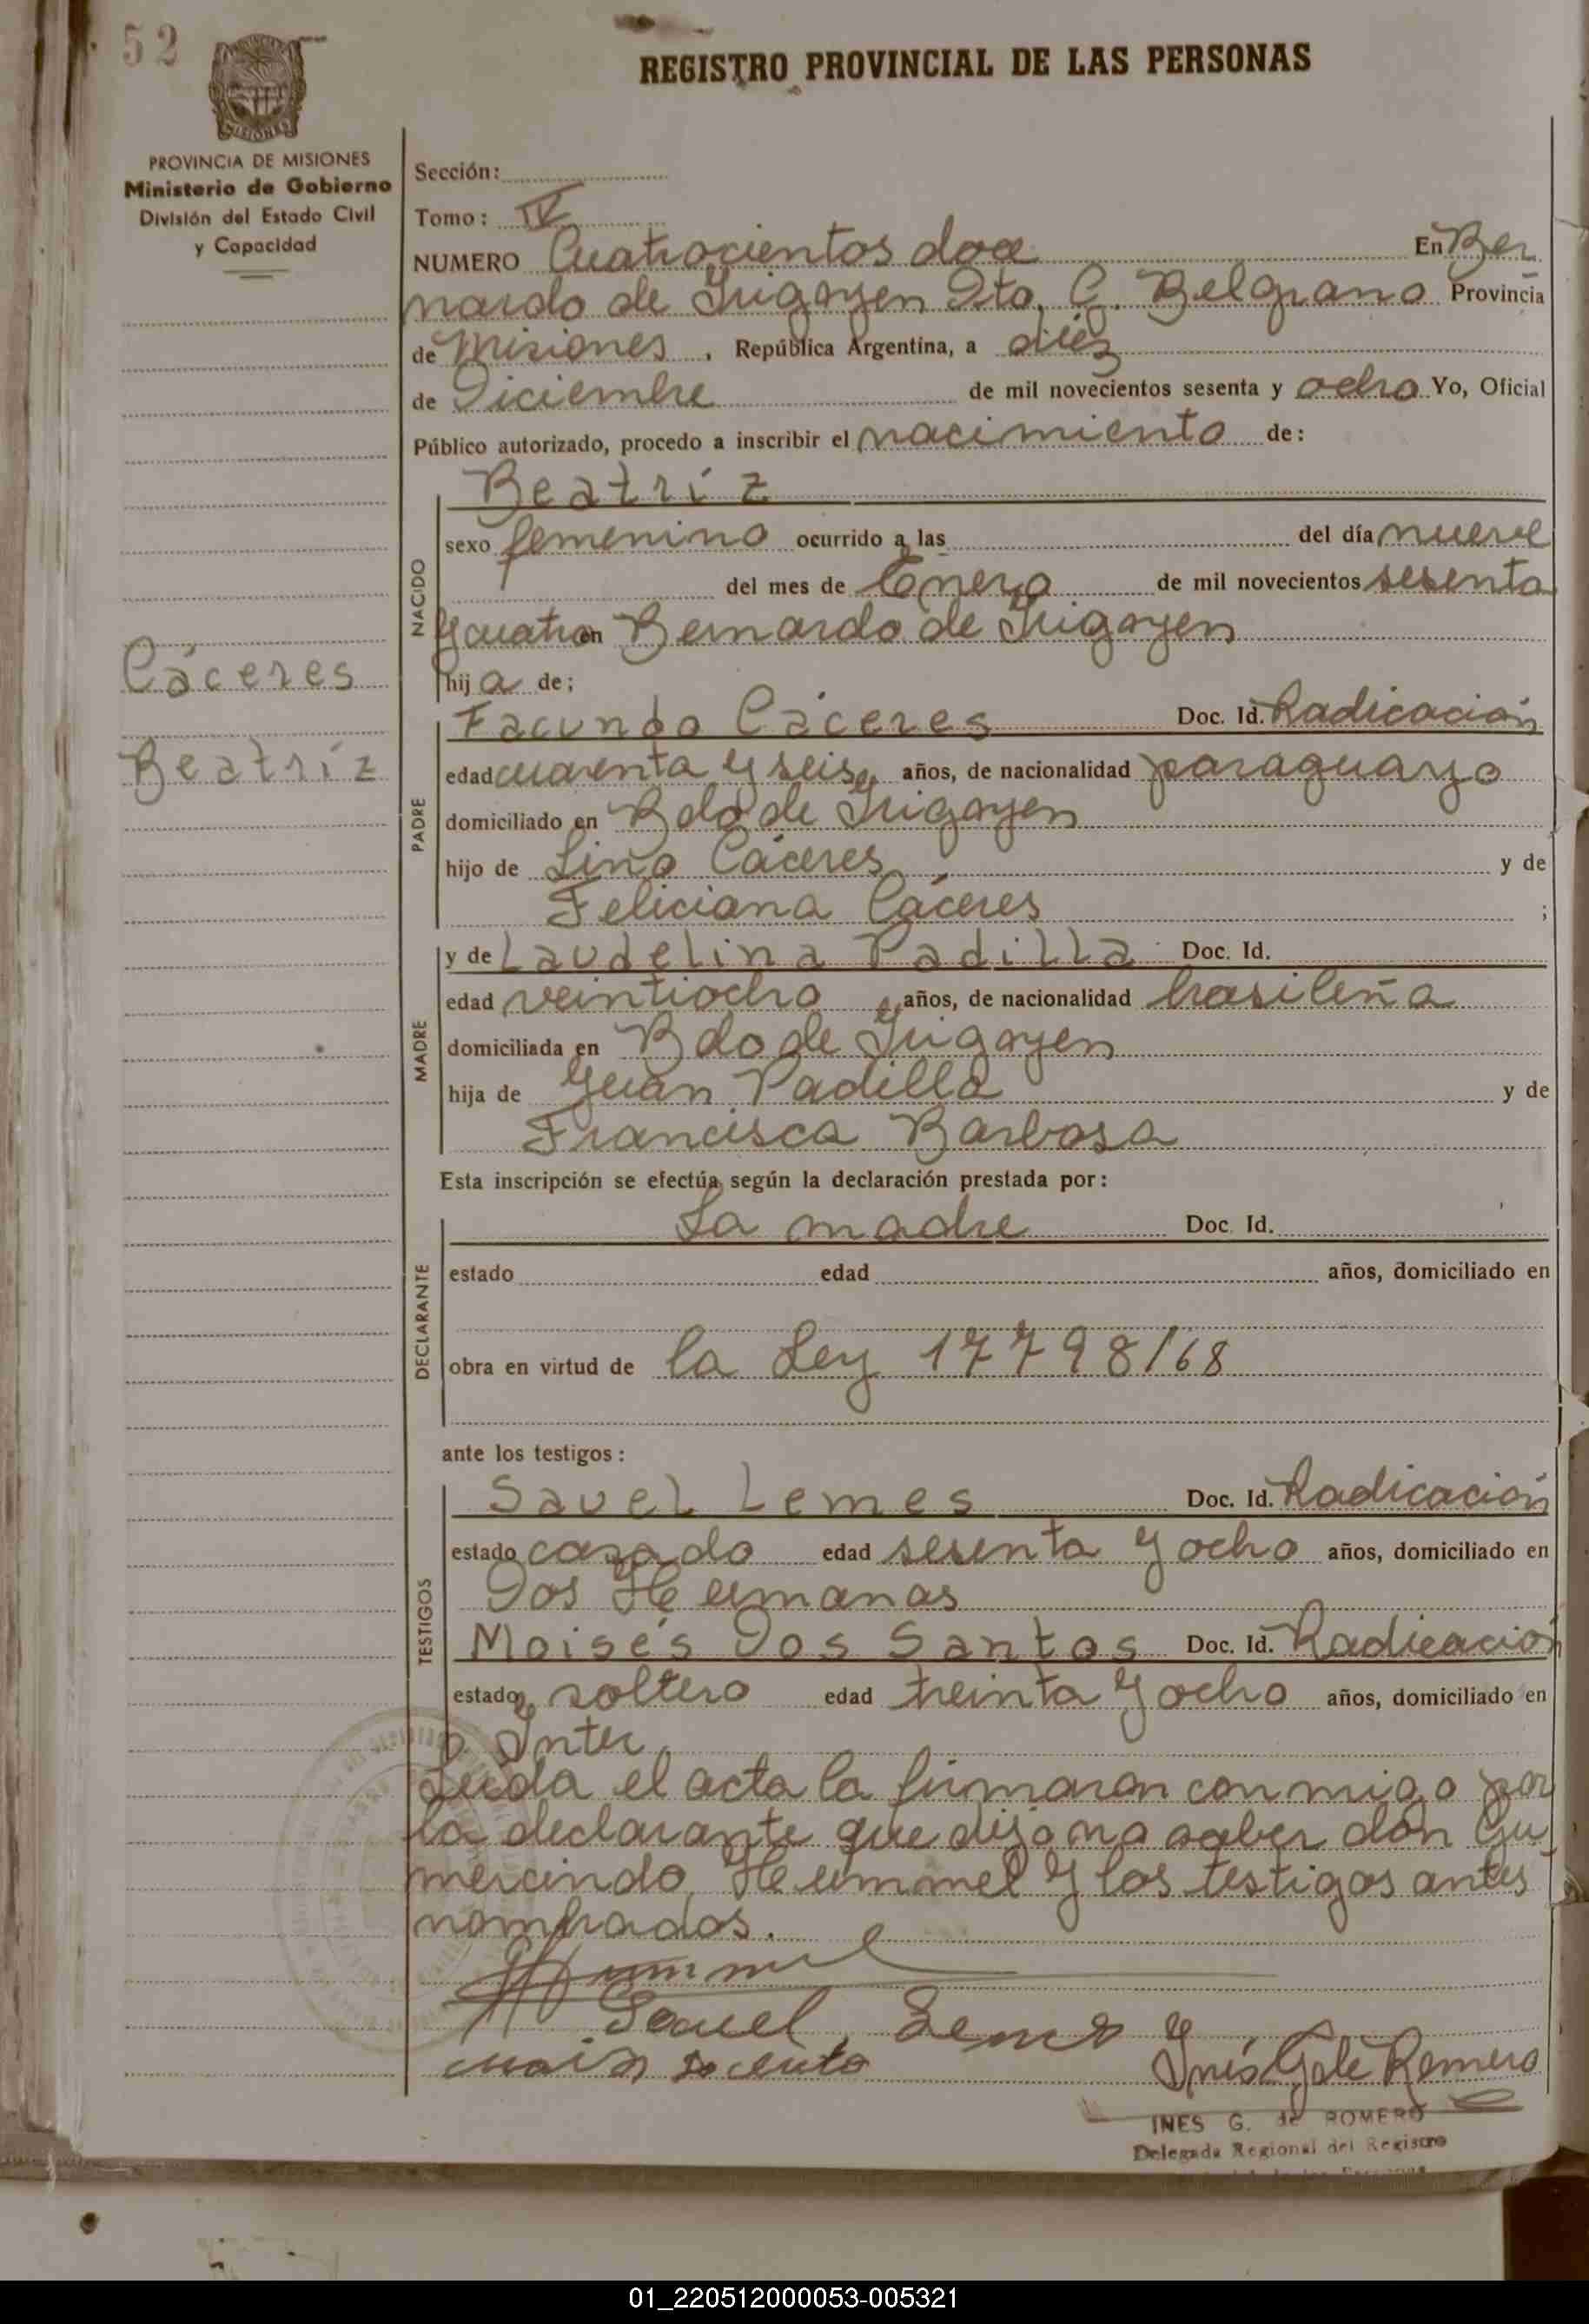 52
REGISTRO PROVINCIAL DE LAS PERSONAS
MISIONES
PROVINCIA DE MISIONES
Ministerio de Gobierno
División del Estado Civil
y Capacidad
Sección:
Tomo: IV
NUMERO Cuatrocientos doce En Ber
nardo de Irigoyen Dto. G. Belgrano Provincia
de Misiones, República Argentina, a diez
de Diciembre de mil novecientos sesenta y ocho Yo, Oficial
Público autorizado, procedo a inscribir el nacimiento de:
Beatríz
NACIDO
sexo femenino ocurrido a las del día nueve
del mes de Enero de mil novecientos sesenta
y cuatro en Bernardo de Irigoyen
Cáceres
hija de;
Facundo Cáceres Doc. Id. Radicación
Beatríz
PADRE
edad cuarenta y seis años, de nacionalidad paraguayo
domiciliado en Bdo de Irigoyen
hijo de Lino Cáceres y de
Feliciana Cáceres ;
y de Laudelina Padilla Doc. Id.
MADRE
edad veintiocho años, de nacionalidad brasileña
domiciliada en Bdo de Irigoyen
hija de Juan Padilla y de
Francisca Barbosa
Esta inscripción se efectúa según la declaración prestada por:
La madre Doc. Id.
DECLARANTE
estado edad años, domiciliado en
obra en virtud de la Ley 17798/68
ante los testigos:
Sauel Lemes Doc. Id. Radicación
TESTIGOS
estado casado edad sesenta y ocho años, domiciliado en
Dos Hermanas
Moisés Dos Santos Doc. Id. Radicación
estado soltero edad treinta y ocho años, domiciliado en
Inter
Leida el acta la firmaron conmigo por
la declarante que dijo no saber don Gu
mercindo Hummel y los testigos antes
nombrados.
Hummel
Sauel Lemes
Inés G de Romero
INES G. de ROMERO
Delegada Regional del Registro
01_220512000053-005321